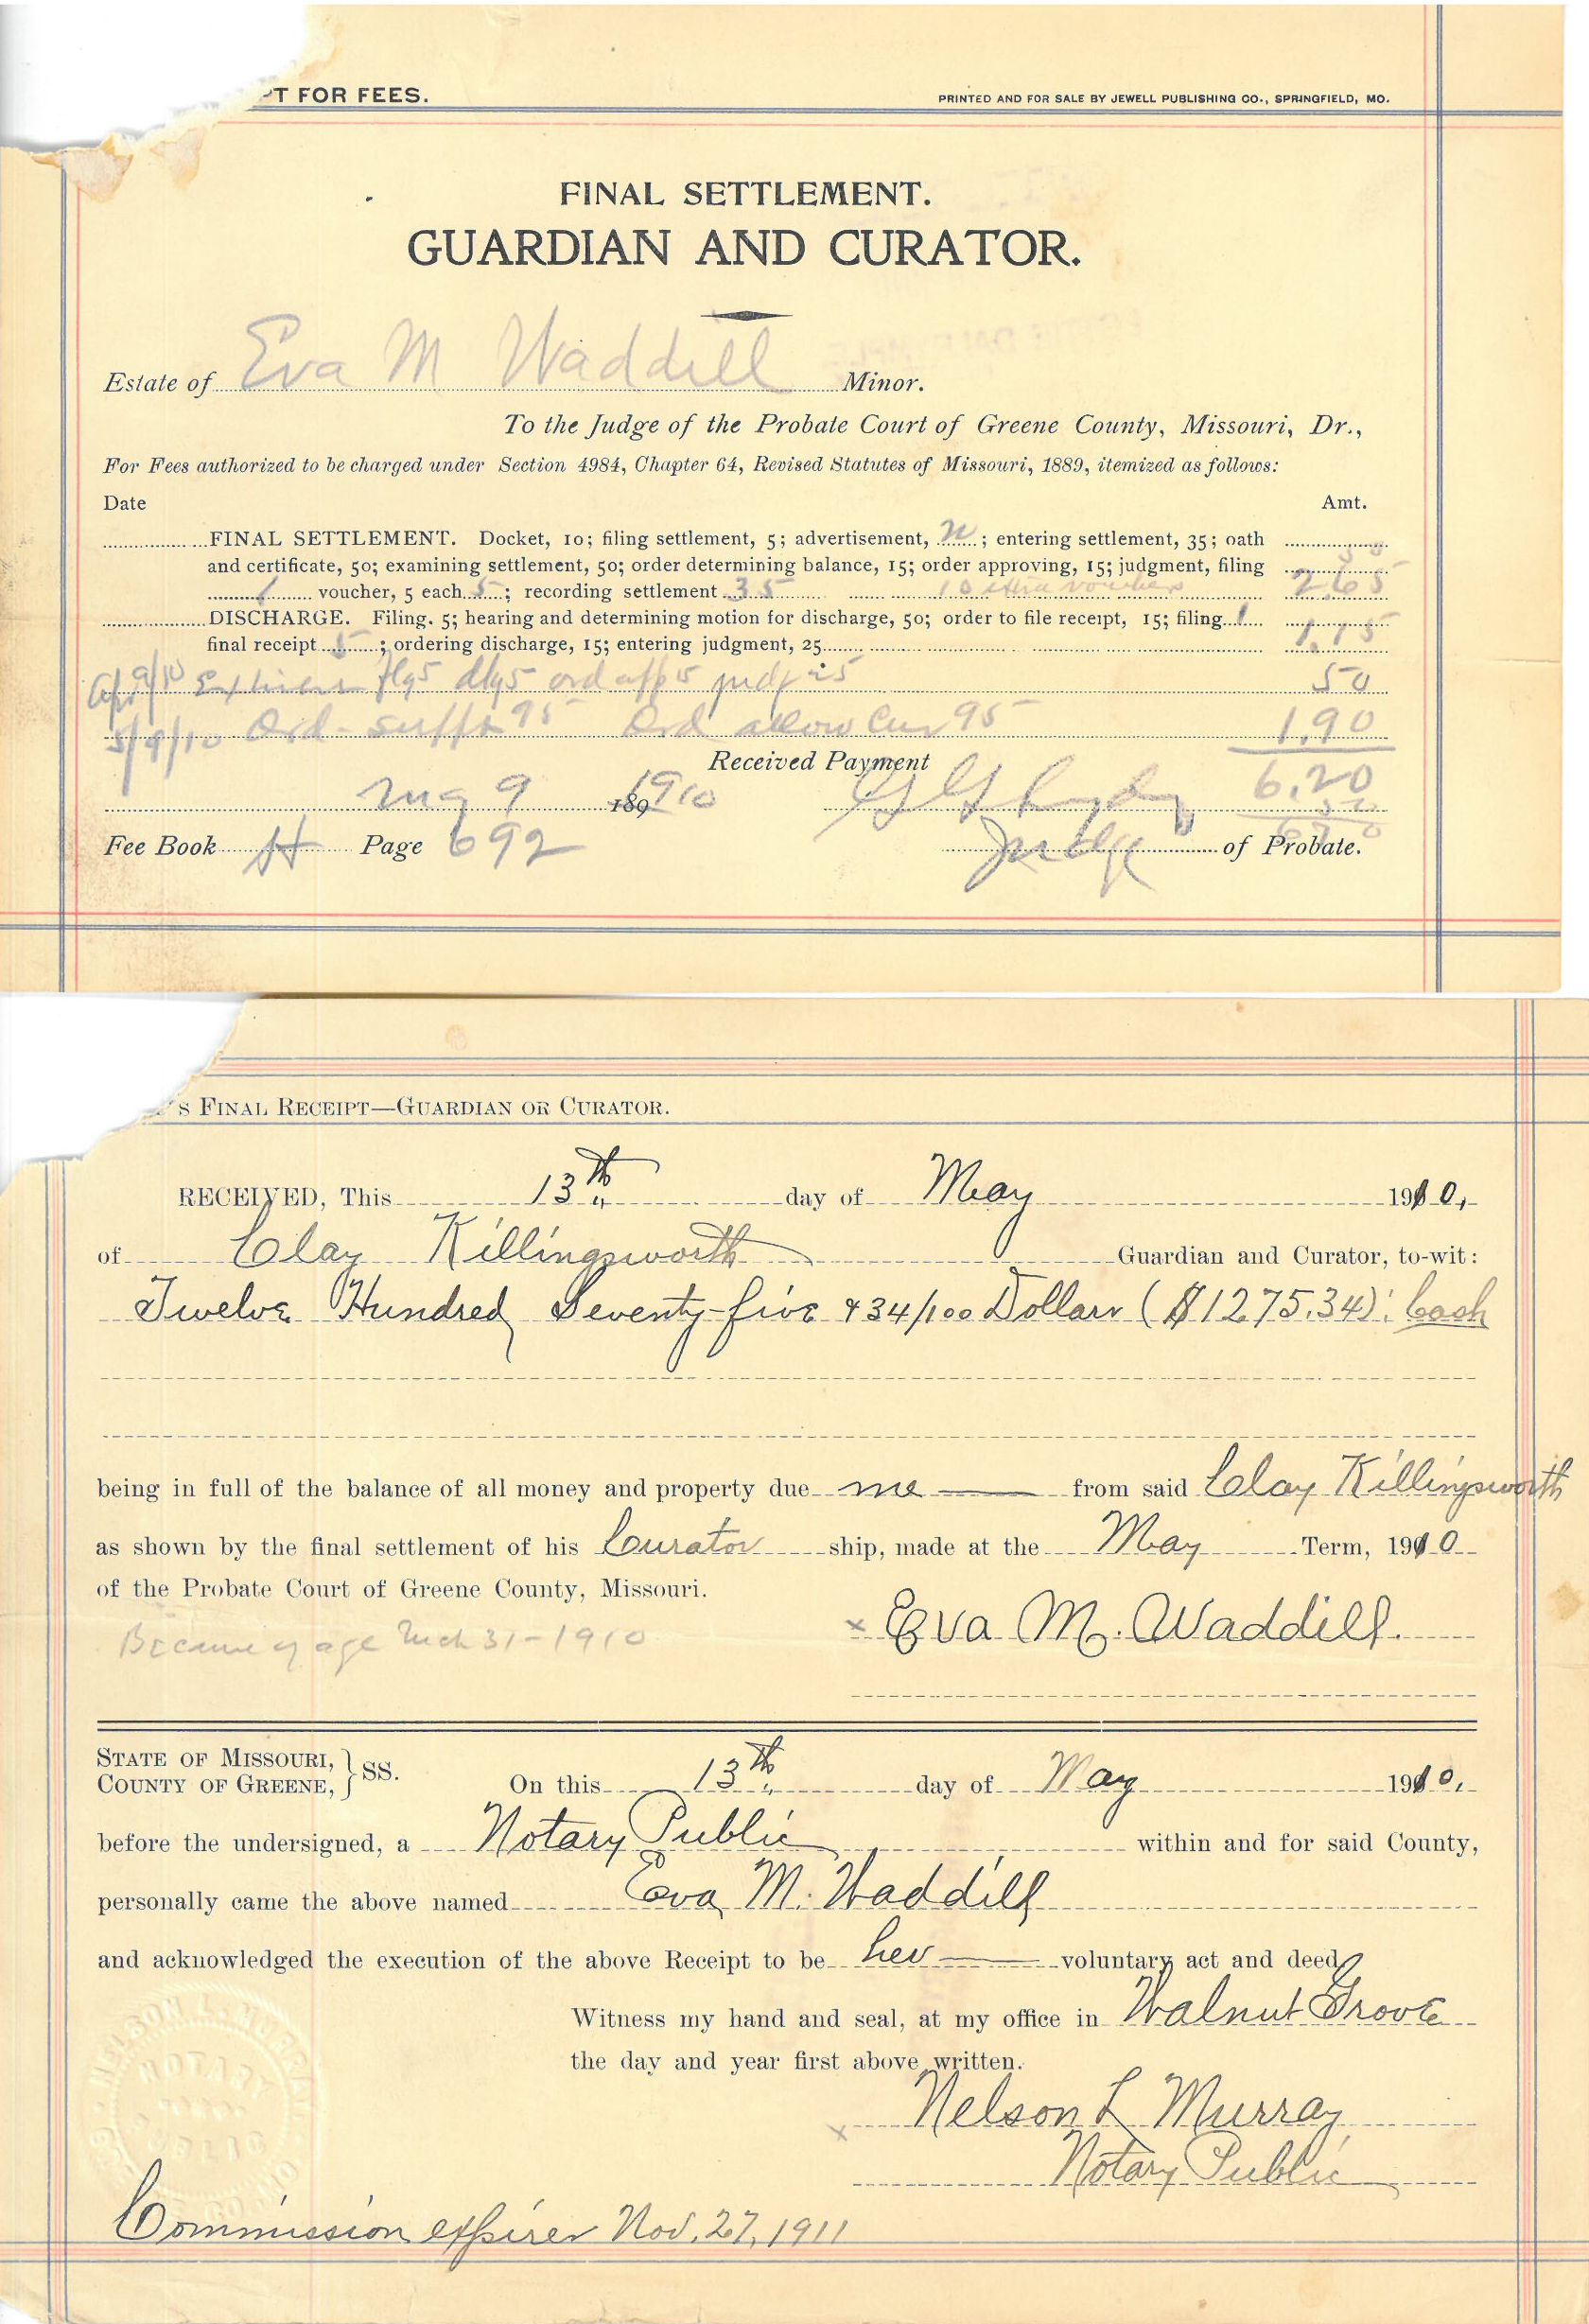 T FOR FEES.
PRINTED AND FOR SALE BY JEWELL PUBLISHING CO., SPRINGFIELD, MO.
FINAL SETTLEMENT.
GUARDIAN AND CURATOR.
Estate of Eva M Waddill Minor.
To the Judge of the Probate Court of Greene County, Missouri, Dr.,
For Fees authorized to be charged under Section 4984, Chapter 64, Revised Statutes of Missouri, 1889, itemized as follows:
Date Amt.
FINAL SETTLEMENT. Docket, 10; filing settlement, 5; advertisement, ; entering settlement, 35; oath
and certificate, 50; examining settlement, 50; order determining balance, 15; order approving, 15; judgment, filing
1 voucher, 5 each 5; recording settlement 35 10 extra vouchers 2.65
DISCHARGE. Filing. 5; hearing and determining motion for discharge, 50; order to file receipt, 15; filing 1
final receipt 5; ordering discharge, 15; entering judgment, 25 1.15
50
5/9/10 Ord 95 Ord allow Cur 95 1.90
Received Payment 6.20
May 9 1891910
Fee Book H Page 692 Judge of Probate.
'S FINAL RECEIPT—GUARDIAN OR CURATOR.
RECEIVED, This 13th day of May 1910,
of Clay Killingsworth Guardian and Curator, to-wit:
Twelve Hundred Seventy-five & 34/100 Dollars ($1275.34): Cash
being in full of the balance of all money and property due me from said Clay Killingsworth
as shown by the final settlement of his Curator ship, made at the May Term, 1910
of the Probate Court of Greene County, Missouri.
x Eva M. Waddill.
Became of age Mch 31-1910
STATE OF MISSOURI, } SS.
COUNTY OF GREENE,
On this 13th day of May 1910,
before the undersigned, a Notary Public within and for said County,
personally came the above named Eva M. Waddill
and acknowledged the execution of the above Receipt to be her voluntary act and deed
Witness my hand and seal, at my office in Walnut Grove
the day and year first above written.
x Nelson L Murray
Notary Public
NELSON L. MURRAY
NOTARY
PUBLIC
Commission expires Nov. 27, 1911